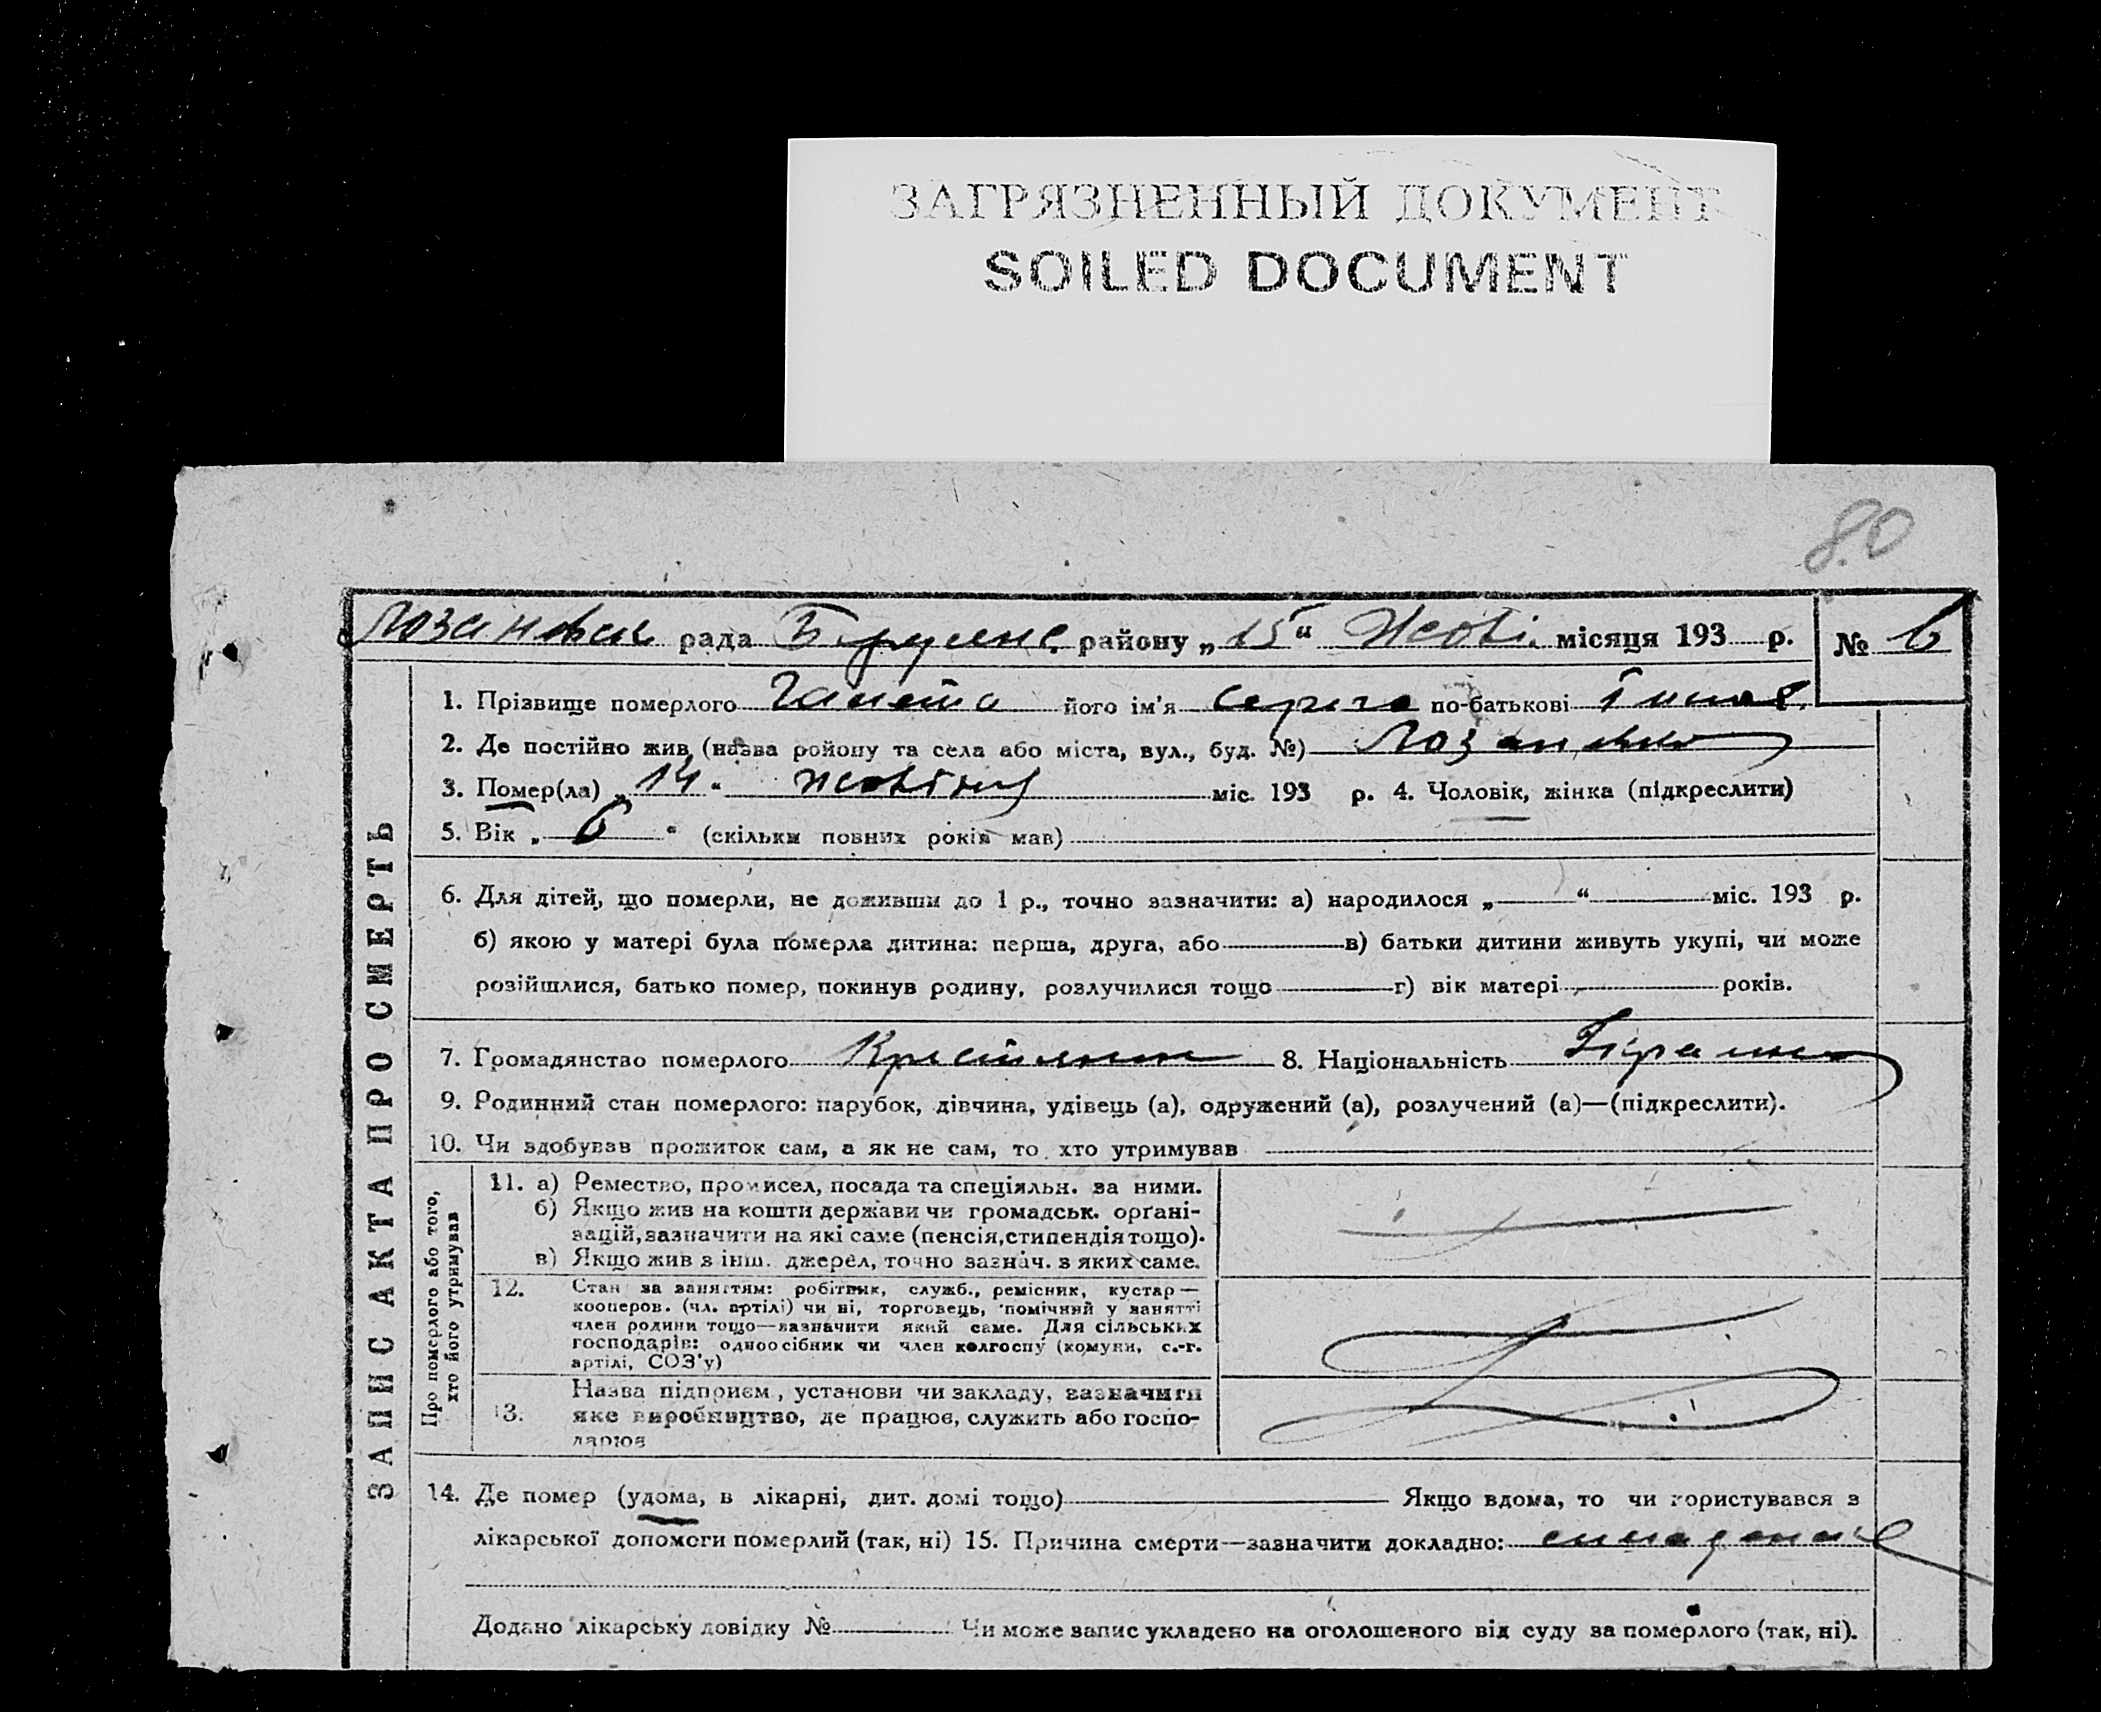 ЗАГРЯЗНЕННЫЙ ДОКУМЕНТ
SOILED DOCUMENT
80
рада району „15“ Жовт. місяця 193 р. № 6
ЗАПИС АКТА ПРО СМЕРТЬ
1. Прізвище померлого його ім'я по-батькові
2. Де постійно жив (назва ройону та села або міста, вул., буд. №)
3. Помер(ла) „14“ жовтня міс. 193 р. 4. Чоловік, жінка (підкреслити)
5. Вік „6“ (скільки повних років мав)
6. Для дітей, що померли, не доживши до 1 р., точно зазначити: а) народилося „ “ міс. 193 р.
б) якою у матері була померла дитина: перша, друга, або в) батьки дитини живуть укупі, чи може
розійшлися, батько помер, покинув родину, розлучилися тощо г) вік матері років.
7. Громадянство померлого 8. Національність
9. Родинний стан померлого: парубок, дівчина, удівець (а), одружений (а), розлучений (а)—(підкреслити).
10. Чи здобував прожиток сам, а як не сам, то хто утримував
Про померлого або того,
хто його утримував
11. а) Ремество, промисел, посада та спеціяльн. за ними.
б) Якщо жив на кошти держави чи громадськ. орґані-
зацій, зазначити на які саме (пенсія, стипендія тощо).
в) Якщо жив з інш. джерел, точно зазнач. з яких саме.
12. Стан за заняттям: робітник, служб., ремісник, кустар—
кооперов. (чл. артілі) чи ні, торговець, помічний у занятті
член родини тощо—зазначити який саме. Для сільських
господарів: одноосібник чи член колгоспу (комуни, с.-г.
артілі, СОЗ'у)
13. Назва підприєм., установи чи закладу, зазначити
яке виробництво, де працює, служить або госпо-
дарює
14. Де помер (удома, в лікарні, дит. домі тощо) Якщо вдома, то чи користувався з
лікарської допомоги померлий (так, ні) 15. Причина смерти—зазначити докладно:
Додано лікарську довідку № Чи може запис укладено на оголошеного від суду за померлого (так, ні).